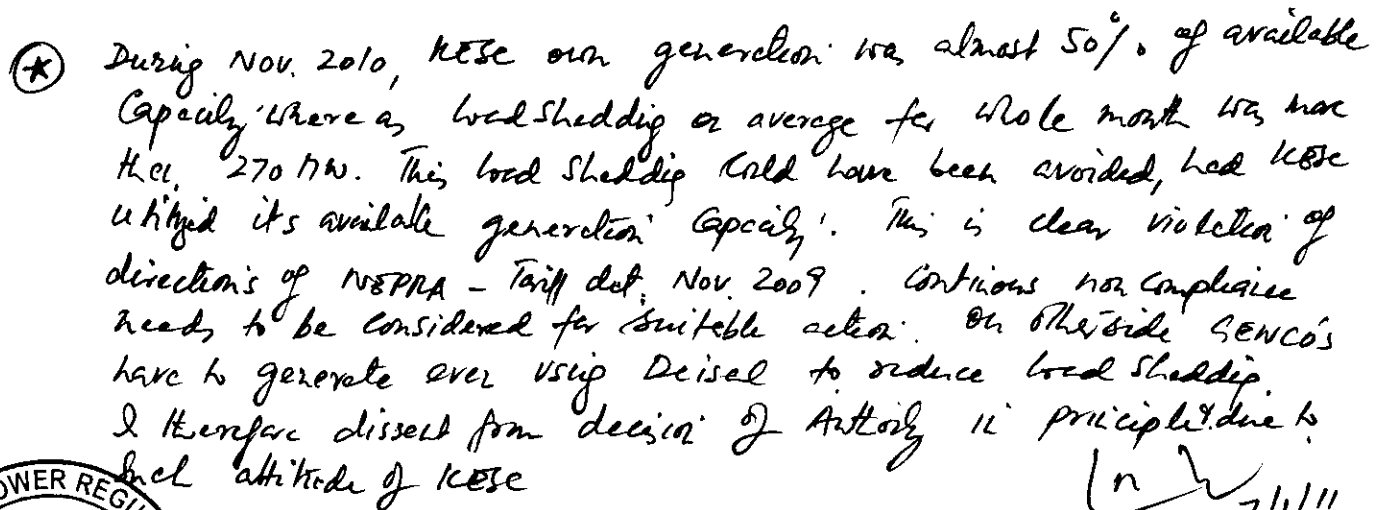 (*) During Nov. 2010, KESC own generation was almost 50% of available
Capacity whereas load Shedding on average for whole month was more
than 270 MW. This load Shedding Could have been avoided, had KESC
utilized it's available generation Capacity. This is clear violation of
direction's of NEPRA - Tariff det. Nov. 2009. Continous non compliance
needs to be Considered for Suitable action. On otherside GENCO's
have to generate even using Deisel to reduce load Shedding.
I therefore dissent from decision of Authority in principle & due to
such attitude of KESC
7/1/11
OWER REGU